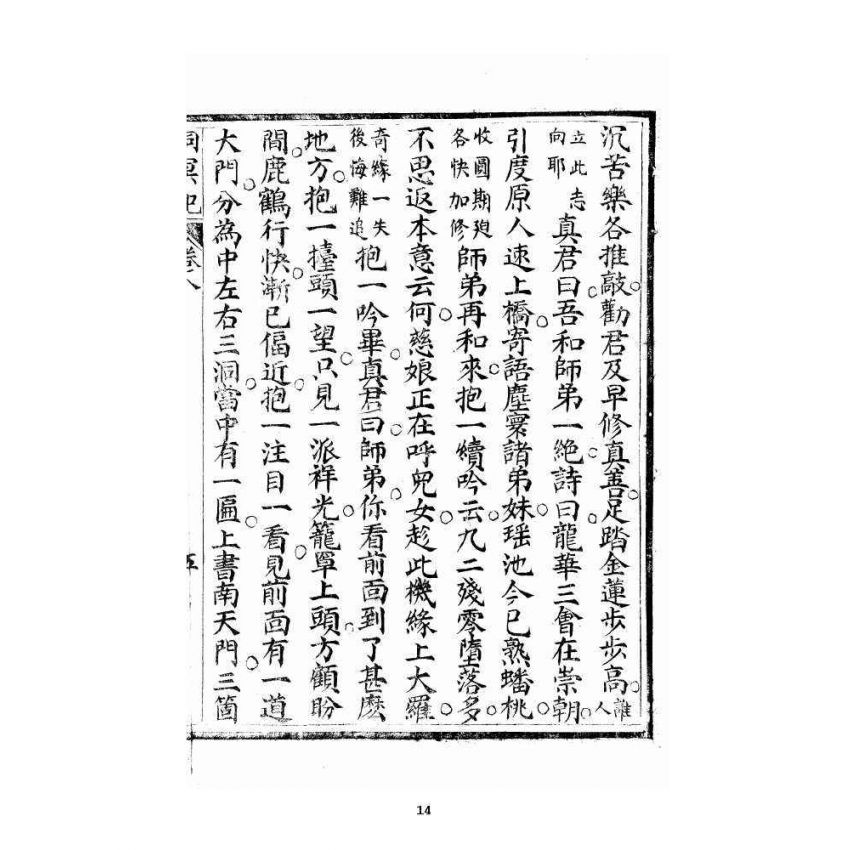 沉苦樂各推敲勸君及早修真善足踏金蓮步步高誰人
立此志向耶真君曰吾和師弟一絶詩曰龍華三會在崇朝
引度原人速上橋寄語塵寰諸弟妹瑶池今已熟蟠桃
收圓期廹各快加修師弟再和來抱一續吟云九二殘零墮落多
不思返本意云何慈娘正在呼兒女趁此機緣上大羅
奇緣一失後悔難追抱一吟畢真君曰師弟你看前面到了甚麽
地方抱一擡頭一望只見一派祥光籠罩上頭方顧盼
間鹿鶴行快漸已偪近抱一注目一看見前面有一道
大門分為中左右三洞當中有一匾上書南天門三箇
洞冥記
卷八
五
14